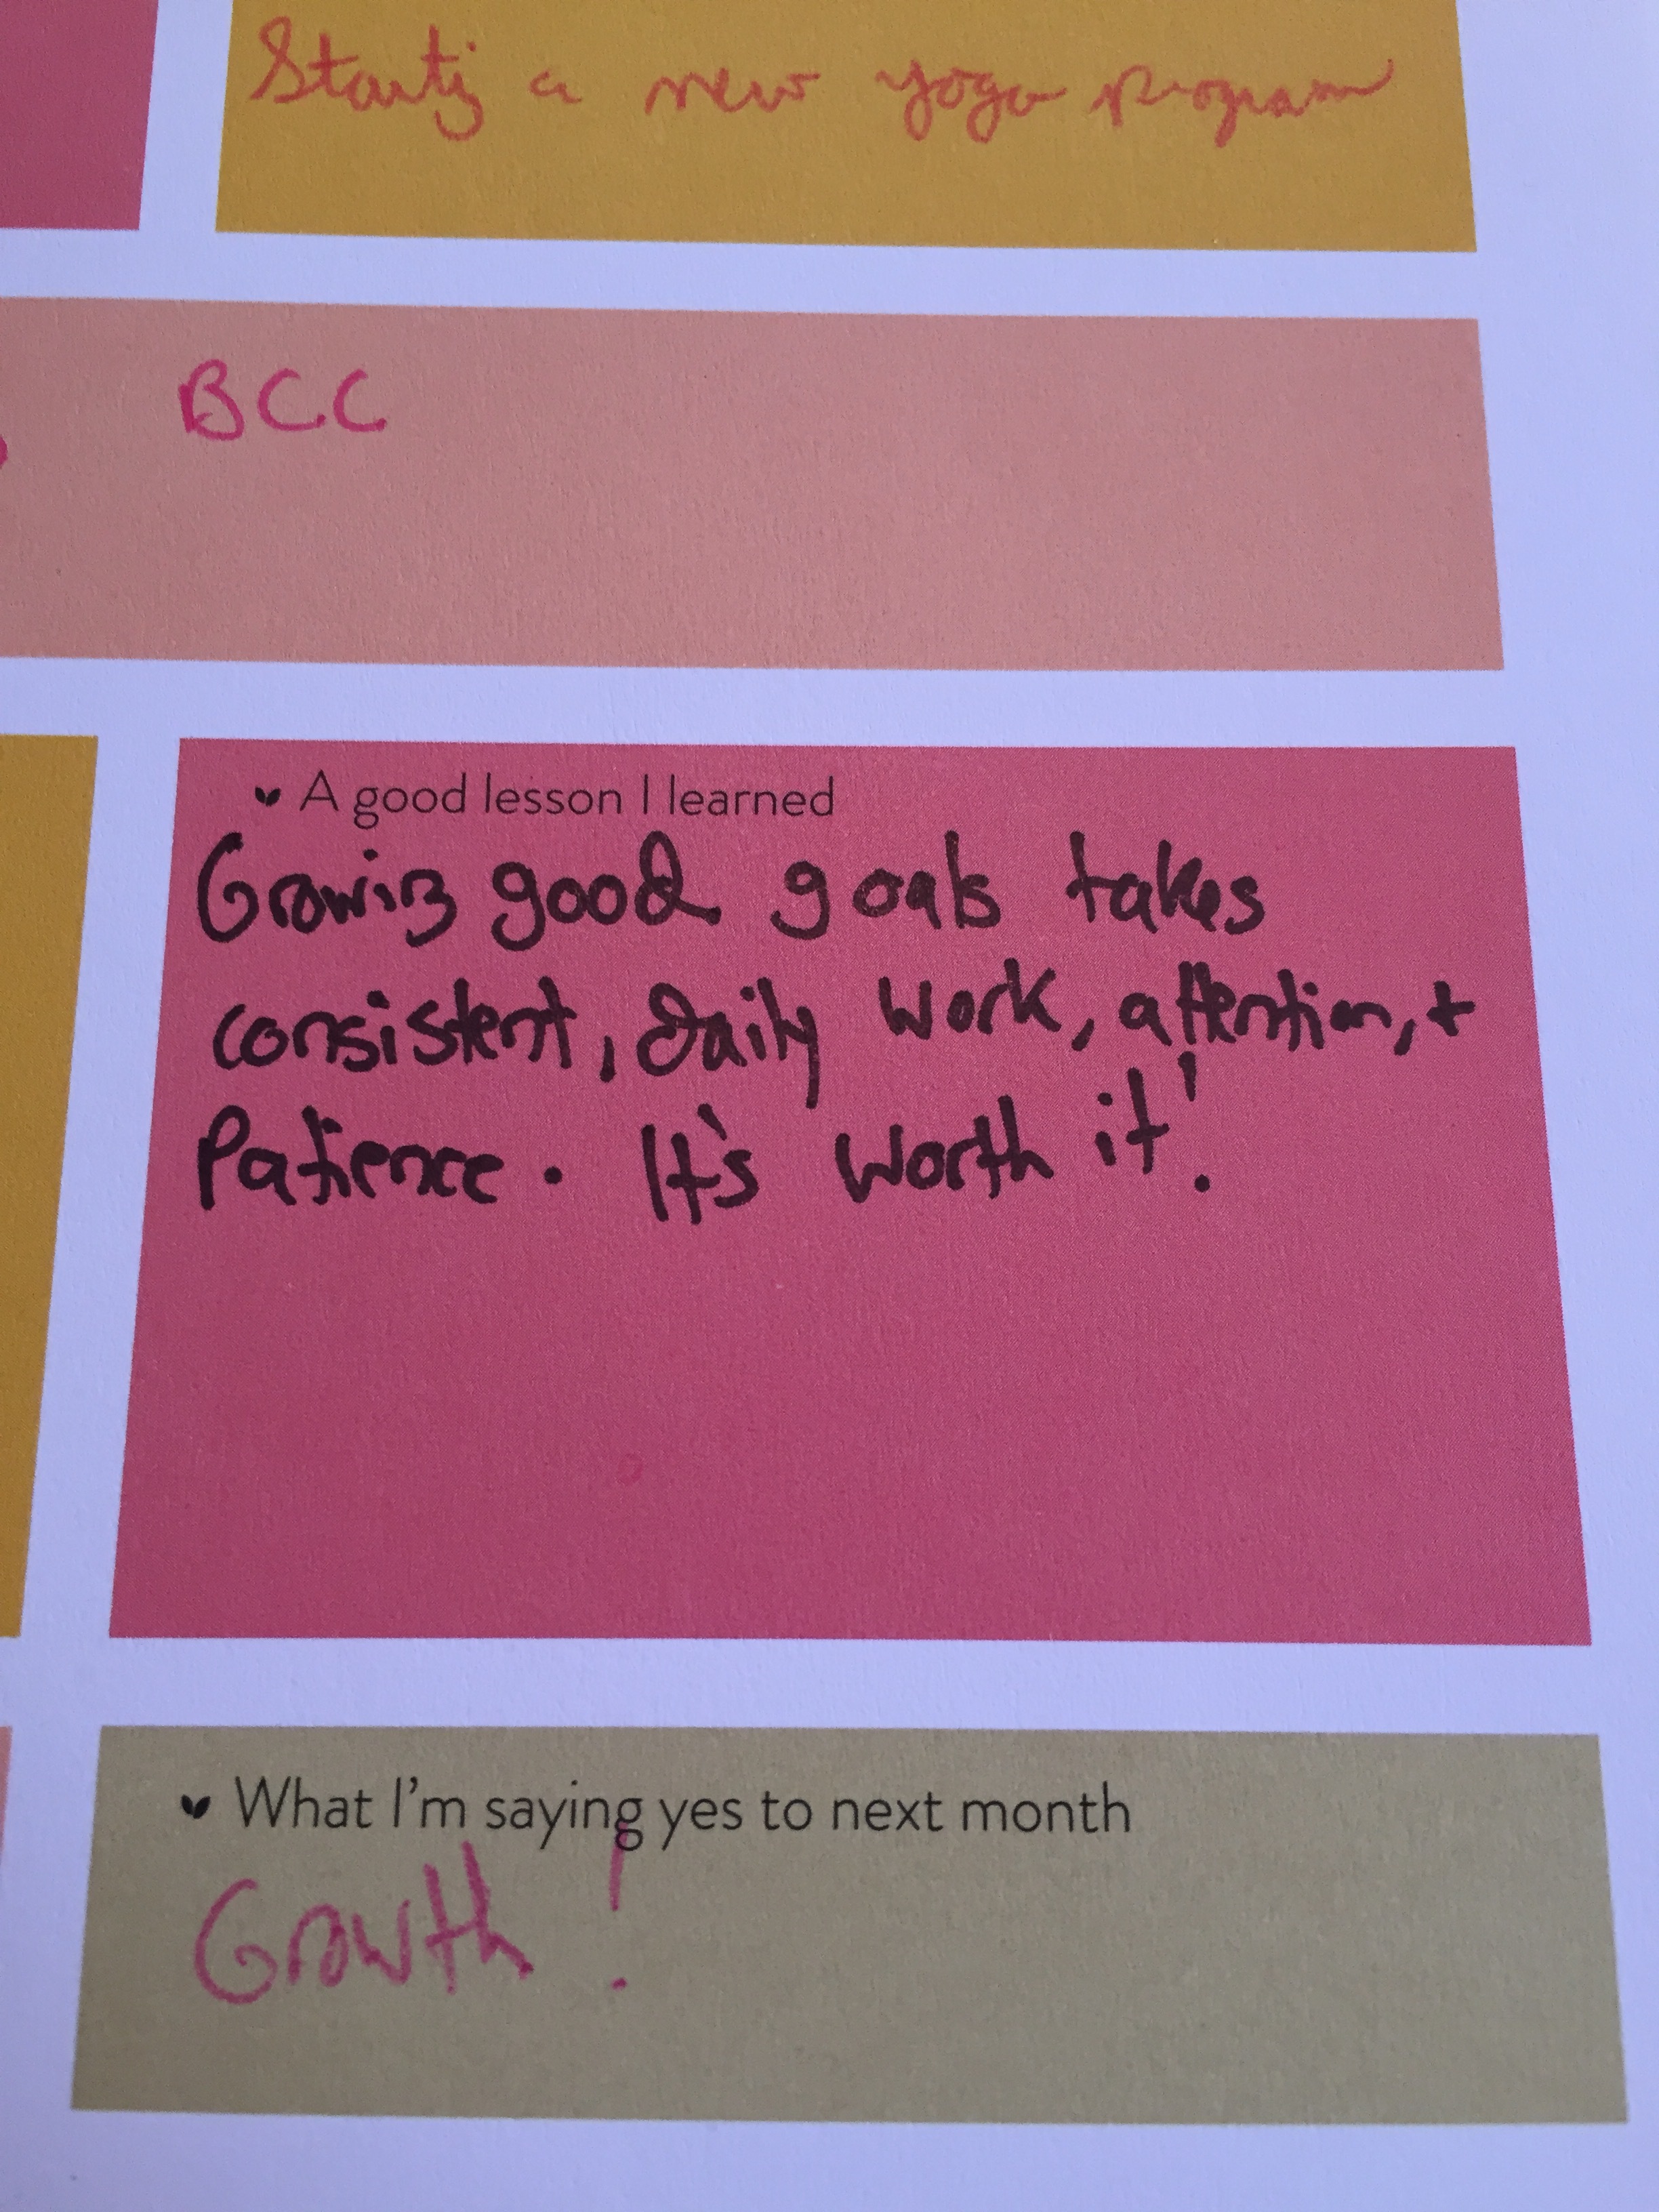 Starting a new yoga program
BCC
A good lesson I learned
Growing good goals takes
consistent, daily work, attention, +
Patience. It's worth it!
What I'm saying yes to next month
Growth!